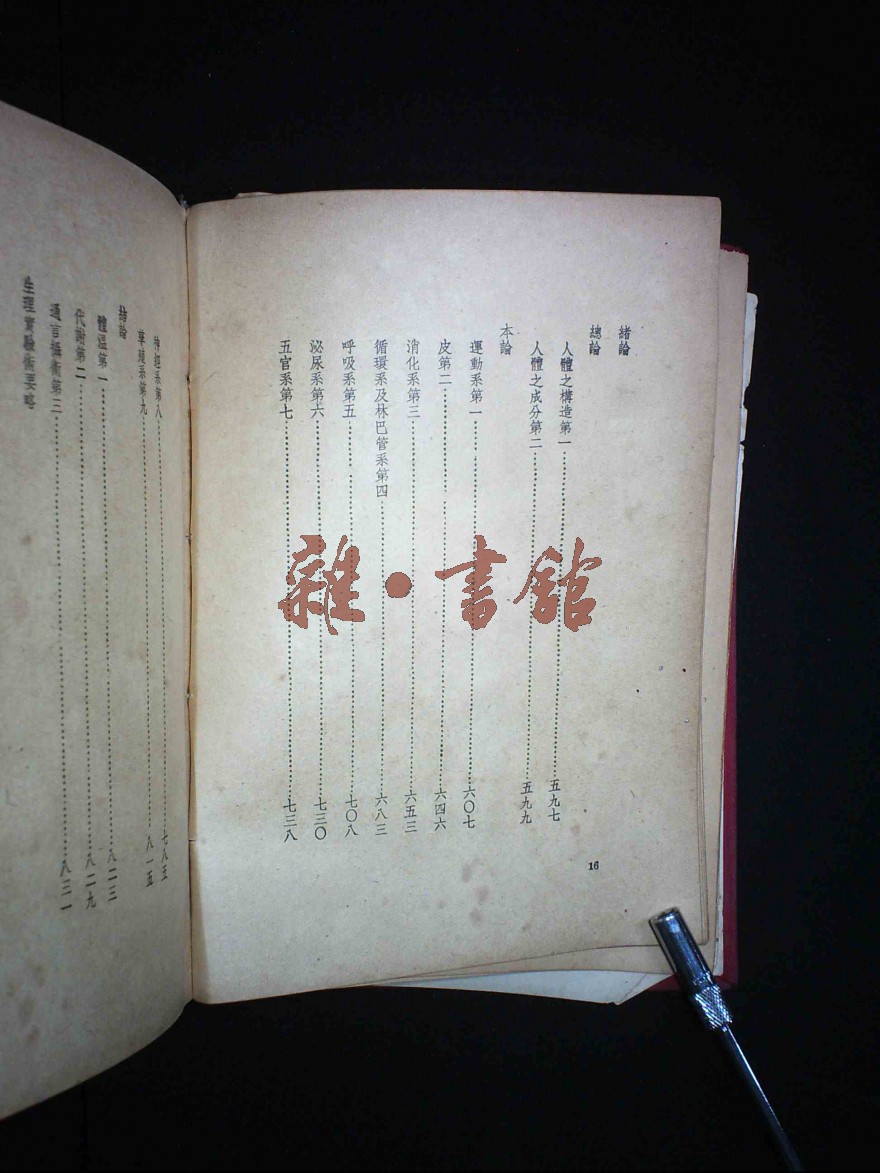 緒論
總論
人體之構造第一……五九七
人體之成分第二……五九九
本論
運動系第一……六〇七
皮第二……六四六
消化系第三……六五三
循環系及林巴管系第四……六八三
呼吸系第五……七〇八
泌尿系第六……七三〇
五官系第七……七三八
16
神經系第八……七八
系第九……八一五
結論
體溫第一……八二三
代謝第二……八二九
通言攝衛第三……八三一
生理實驗術要略
雜·書館